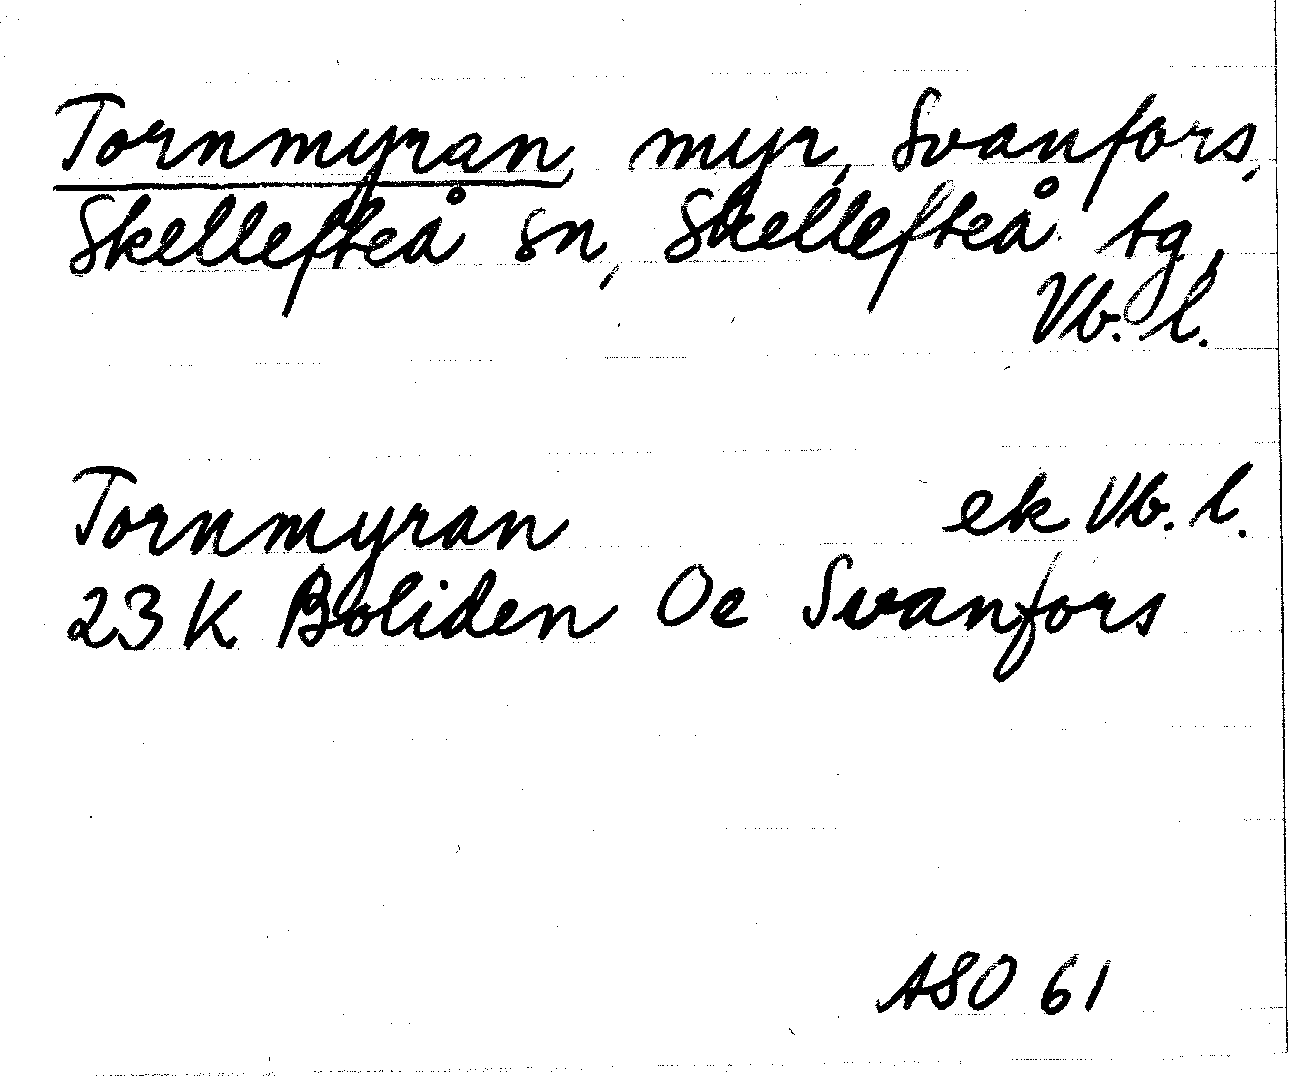 Tornmyran, myr, Svanfors,
Skellefteå sn, Skellefteå tg,
Vb. l.
Tornmyran ek Vb. l.
23 K Boliden Oe Svanfors
ASO 61